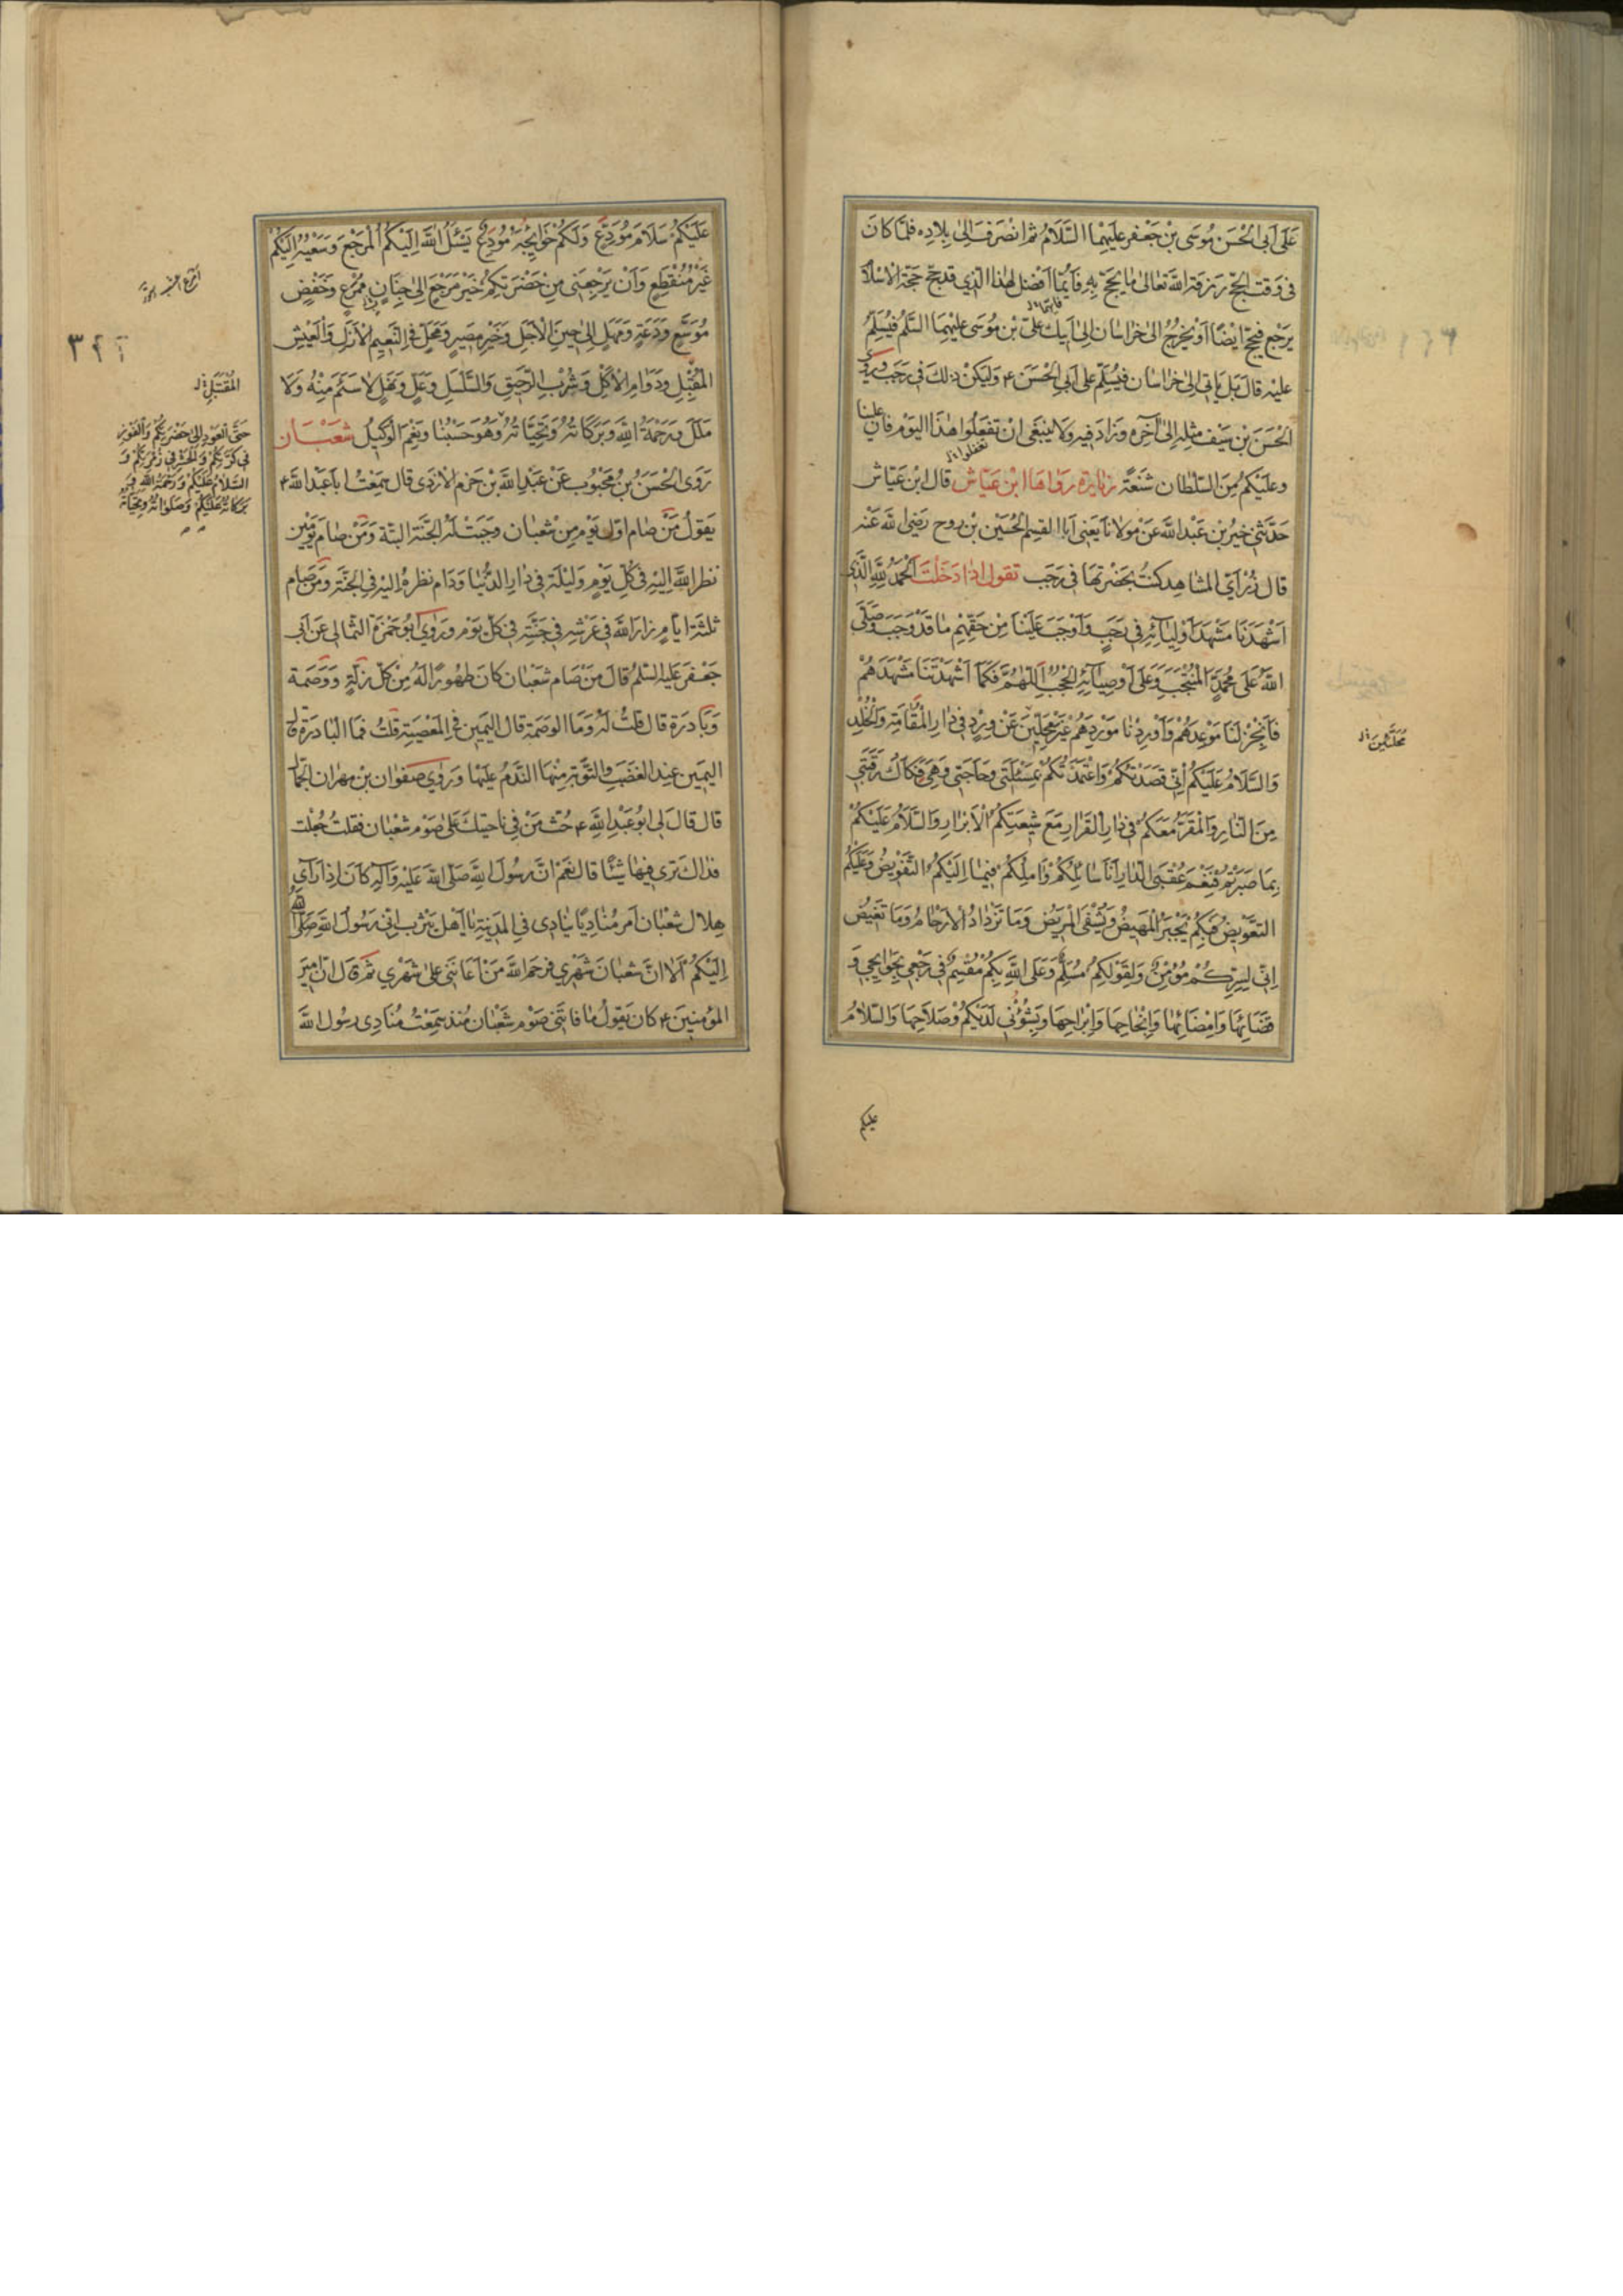 عَلَى اَبِى الْحَسَنِ مُوسَى بْنِ جَعْفَرٍ عَلَيْهِمَا السَّلَامُ ثم انْصَرَفَ اِلىٰ بِلادِه فلمّا كانَ
فى وَقت الحجّ رزقه الله تعالىٰ ما يحجّ بِهِ فَأَيُّما اَفضل لهٰذا الّذى قد حجّ حجّة الاسلام
يَرْجع فيحجّ ايضًا اَوْ يخرُجُ الىٰ خراسان الىٰ اَبيك علىّ بن مُوسىٰ عليهما السّلم فيُسَلّمُ
عليه قال بَل يَاتى الىٰ خراسان فيُسَلّم على اَبِى الْحَسَنِ ع وَليكن ذٰلكَ فى رَجَب وروى
الْحَسَن بن سَيْف مثله اِلىٰ آخره وَزاد فيه وَلا ينبغى انْ تفعَلوا هٰذا اليَوْم فان علينا
تفعلوا
وعَلَيْكم مِنَ السّلطان شنعَةً زيارة رواها ابن عيّاش قال ابن عَيّاش
حَدَّثنى خير بن عَبْد الله عَنْ مَولانا يعنى اَبا القسم الحُسَيْن بْن روح رَضى الله عَنه
قال زُرْ اَىّ المشاهد كنت بحَضْرتها فى رَجَب تقول اذا دَخَلْتَ اَلْحَمْدُ لِلّهِ الَّذى
اَشْهَدَنا مَشْهَدَ اَوْلِيٰآئِهِ فى رَجَبٍ وَاَوْجَبَ عَلَيْنا مِنْ حَقِّهِمْ ما قَدْ وَجَبَ وَصَلَّى
اللهُ عَلىٰ مُحَمَّدٍ الْمُنْتَجَبِ وَعَلىٰ اَوْصِيٰآئِهِ الْحُجُبِ اَللّهُمَّ فَكَمٰا اَشْهَدْتَنا مَشْهَدَهُمْ
فَاَنْجِزْ لَنا مَوْعِدَهُمْ وَاَوْرِدْنا مَوْرِدَهُمْ غَيْرَ مُحَلَّئِينَ عَنْ وِرْدٍ فى دٰارِ الْمُقٰامَةِ وَالْخُلْدِ
وَالسَّلٰامُ عَلَيْكُمْ اِنّى قَصَدْتُكُمْ وَاعْتَمَدْتُكُمْ بِمَسْئَلَتى وَحٰاجَتى وَهِىَ فَكٰاكُ رَقَبَتى
مِنَ النّارِ وَالْمَقَرُّ مَعَكُمْ فى دٰارِ الْقَرٰارِ مَعَ شيعَتِكُمُ الْاَبْرٰارِ وَالسَّلٰامُ عَلَيْكُمْ
بِمٰا صَبَرْتُمْ فَنِعْمَ عُقْبَى الدّٰارِ اَنَا سٰائِلُكُمْ وَآمِلُكُمْ فيمٰا اِلَيْكُمُ التَّفْويضُ وَعَلَيْكُمُ
التَّعْويضُ فَبِكُمْ يُجْبَرُ الْمَهيضُ وَيُشْفَى الْمَريضُ وَمٰا تَزْدٰادُ الْاَرْحٰامُ وَمٰا تَغيضُ
اِنّى بِسِرِّكُمْ مُؤْمِنٌ وَلِقَوْلِكُمْ مُسَلِّمٌ وَعَلَى اللهِ بِكُمْ مُقْسِمٌ فى رَجْعى بِحَوٰائِجى وَ
قَضٰائِهٰا وَاِمْضٰائِهٰا وَاِنْجٰاحِهٰا وَاِبْرٰاحِهٰا وَبِشُؤُنى لَدَيْكُمْ وَصَلٰاحِهٰا وَالسَّلٰامُ
عليكم
عَلَيْكُمْ سَلٰامَ مُوَدِّعٍ وَلَكُمْ حَوٰائِجَهُ مُودِعٌ يَسْئَلُ اللهَ اِلَيْكُمُ الْمَرْجَعَ وَسَعْيُهُ اِلَيْكُمْ
غَيْرُ مُنْقَطِعٍ وَاَنْ يَرْجِعَنى مِنْ حَضْرَتِكُمْ خَيْرَ مَرْجَعٍ اِلىٰ جَنٰابٍ مُمْرِعٍ وَخَفْضٍ
مُوَسَّعٍ وَدَعَةٍ وَمَهَلٍ اِلىٰ حينِ الْاَجَلِ وَخَيْرِ مَصيرٍ وَمَحَلٍّ فِى النَّعيمِ الْاَزَلِ وَالْعَيْشِ
الْمُقْتَبَلِ وَدَوٰامِ الْاُكُلِ وَشُرْبِ الرَّحيقِ وَالسَّلْسَلِ وَعَلٍّ وَنَهَلٍ لٰا سَئَمَ مِنْهُ وَلٰا
مَلَلَ وَرَحْمَةُ اللهِ وَبَرَكٰاتُهُ وَتَحِيّٰاتُهُ وَهُوَ حَسْبُنٰا وَنِعْمَ الْوَكيلُ شعبان
رَوَى الْحَسَنُ بنُ مَحْبُوب عَنْ عَبْدِ الله بْن حَزم الازدى قال سَمِعْتُ ابا عَبْد الله ع
يَقولُ مَنْ صٰام اوّل يَوْم مِنْ شَعْبٰان وَجَبَتْ لَهُ الجَنّة البتّة وَمَنْ صٰامَ يَوْمَيْن
نظر الله اِليه فى كُلّ يَوْمٍ وَليْلَة فى دٰارِ الدُّنْيٰا وَدٰام نظره اليه فى الجَنّة وَمَنْ صٰام
ثلثة ايّامٍ زار الله فى عَرْشِهِ فى جَنّتِهِ فى كلّ يَوْم وَرَوىٰ اَبُو حَمْزَة الثمالى عَن اَبى
جَعْفر عَليه السّلم قال مَنْ صٰام شَعْبٰان كانَ طهُورًا لَهُ مِنْ كلّ زلّةٍ وَوَصْمَة
وَبٰادِرَة قال قلتُ لَهُ وَمَا الوصمَة قال اليَمين فى المَعْصيَة قلتُ فمَا البٰادرَة ق
اليَمين عِند الغضَب والتّوبَة مِنهَا النّدَمُ عَليْهٰا وَرَوىٰ صَفوان بْن مِهْران الجمّال
قال قال لى ابُو عَبْدِ الله ع حُثّ مَنْ فى ناحِيتك عَلىٰ صَوْم شَعْبٰان فقلتُ جُعِلت
فداك تَرى فيهٰا شيئًا قال نعَمْ انّ رَسُول الله صَلَّى اللهُ عَلَيْهِ وَآلِهِ كانَ اِذٰا رَآى
هِلال شَعْبٰان اَمر مُنٰاديًا يُنٰادى فى المَدينةِ يٰا اَهْل يَثرب انّى رَسُولُ اللهِ صلى الله
اِلَيْكُمْ اَلٰا انَّ شعْبٰانَ شَهْرى فرحمَ الله مَنْ اَعٰانَنى عَلىٰ شَهْرى ثم قال انّ اميرَ
المؤمنينَ ع كان يَقولُ مٰا فاتَنى صَوْم شَعْبٰان مُنذ سَمِعْتُ مُنٰادى رسُول الله
٣٤٢
المُقتبل
حَتّى العَود اِلىٰ حَضْرَتِكُمْ وَالفَوْزِ
فى كَرَّتِكُمْ وَالْحَشْرِ فى زُمْرَتِكُمْ وَ
السَّلامُ عَلَيْكُمْ وَرَحْمَةُ اللهِ وَ
بَرَكاتُهُ عَلَيْكُمْ وَصَلَواتُهُ وَتَحِيّاتُهُ